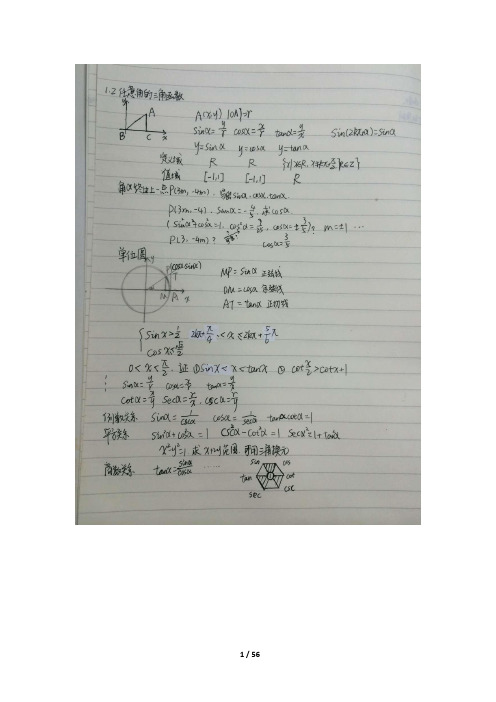 1.2 任意角的三角函数
y A B C x
A(x,y) |OA|=r
sinα=y/r cosα=x/r tanα=y/x sin(2kπ+α)=sinα
y=sinα y=cosα y=tanα
定义域 R R
值域 [-1,1] [-1,1] R
角α终边上一点P(3m,-4m), sinα.cosα.tanα.
P(3m,-4), sinα=-4/5, 求cosα
(sin²α+cos²α=1, cos²α=9/25, cosα=±3/5)? m=±1 …
P(3,-4m)? cosα=3/5
单位圆 y (cosα,sinα)
MP=sinα 正弦线
OM=cosα 余弦线
AT=tanα 正切线
M A x
{ sinx>1/2 2kπ+π/4 <x≤2kπ+5/6π
cosx≤√2/2
0<x<π/2. 证 ①sinx<x<tanx ② cot x/2>cotx+1
sinα=y/r cosα=x/r tanα=y/x
cotα=x/y secα=r/x, cscα=r/y
倒数关系 sinα=1/cscα cosα=1/secα tanαcotα=1
平方关系 sin²α+cos²α=1 csc²α-cot²α=1 sec²α=1+tan²α
x²+y²=1 求x+y范围 可用三角换元
商数关系 tanα=sinα/cosα ……
sin cos
tan 1 cot
sec csc
1 / 56